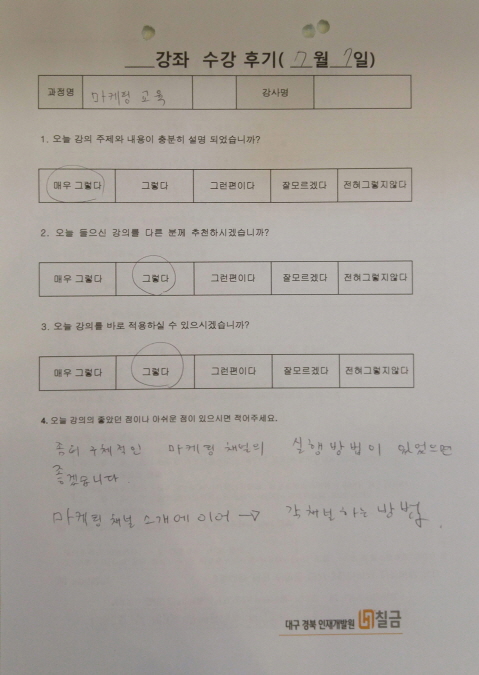 ___강좌 수강 후기( 7월 7일)
과정명 마케팅 교육 강사명
1. 오늘 강의 주제와 내용이 충분히 설명 되었습니까?
매우 그렇다 그렇다 그런편이다 잘모르겠다 전혀그렇지않다
2. 오늘 들으신 강의를 다른 분께 추천하시겠습니까?
매우 그렇다 그렇다 그런편이다 잘모르겠다 전혀그렇지않다
3. 오늘 강의를 바로 적용하실 수 있으시겠습니까?
매우 그렇다 그렇다 그런편이다 잘모르겠다 전혀그렇지않다
4. 오늘 강의의 좋았던 점이나 아쉬운 점이 있으시면 적어주세요.
좀더 구체적인 마케팅 채널의 실행방법이 있었으면
좋겠습니다.
마케팅 채널 소개에 이어 → 각 채널 하는 방법.
대구 경북 인재개발원 칠금